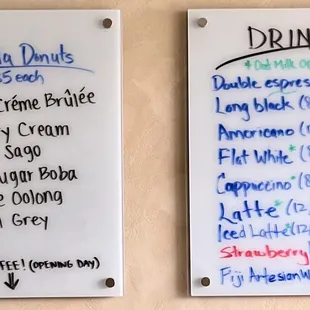 la Donuts
5 each
Créme Brûlée
y Cream
Sago
ugar Boba
e Oolong
l Grey
FEE! (OPENING DAY)
DRIN
* Oat Milk Op
Double espres
Long black (8
Americano (1
Flat White* (8
Cappuccino* (8
Latte* (12,
Iced Latte* (12,
Strawberry
Fiji Artesian W